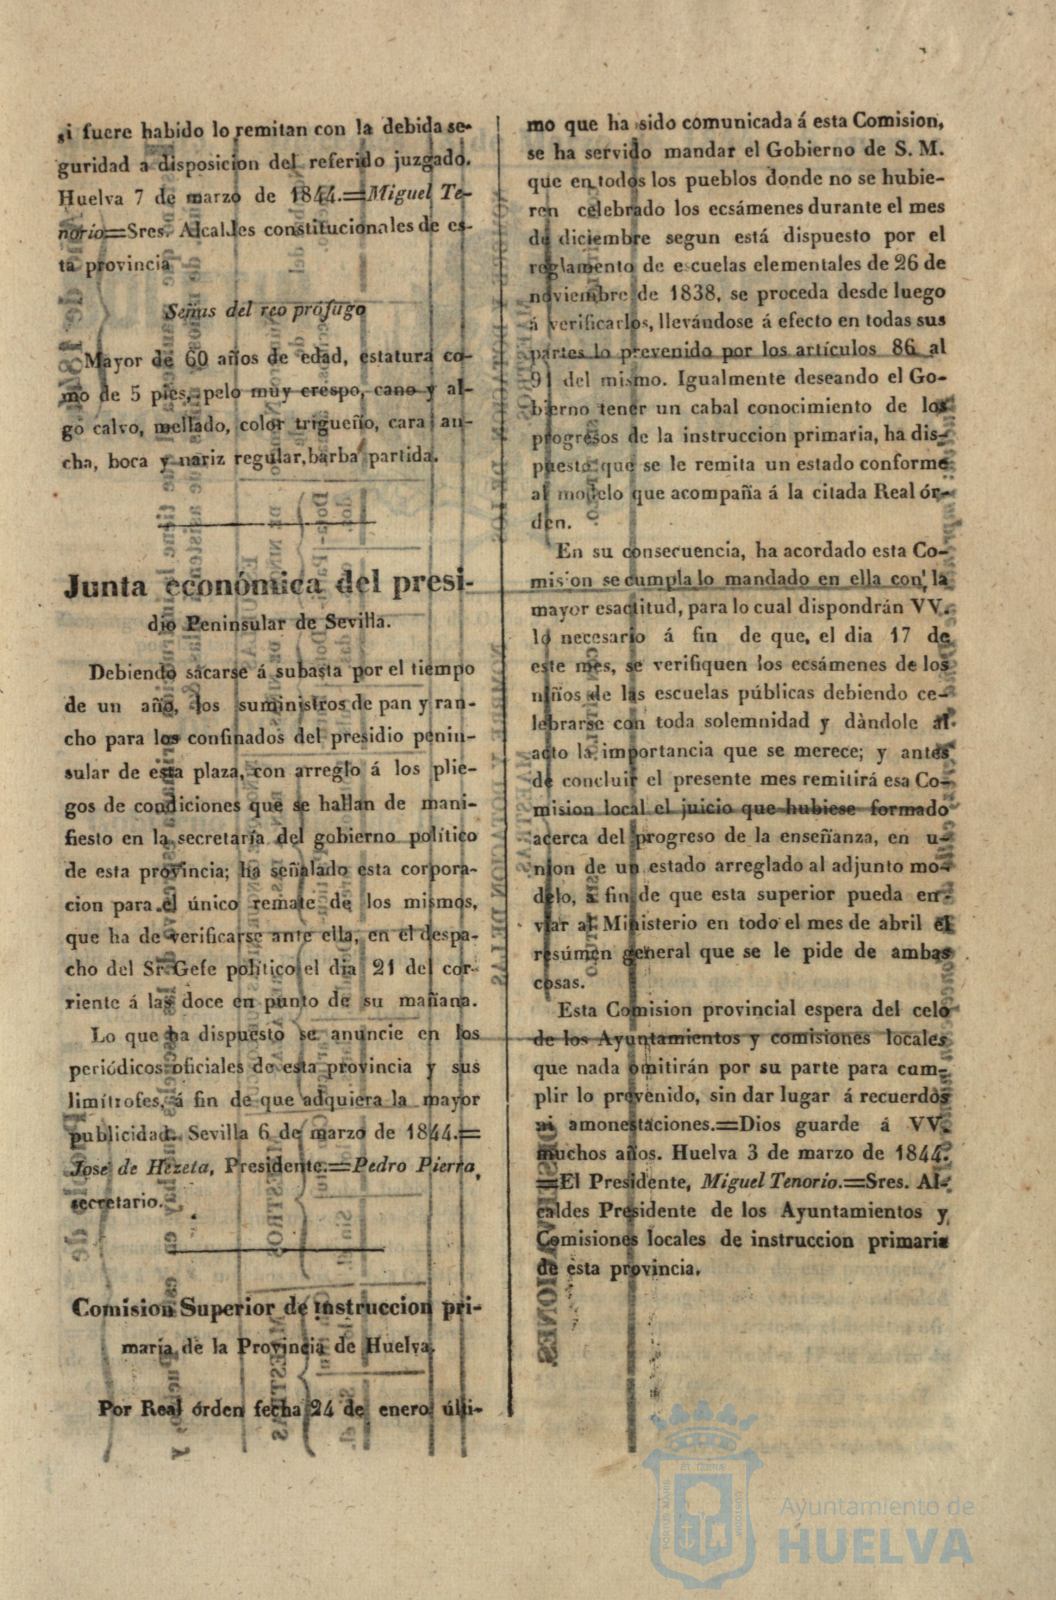 si fuere habido lo remitan con la debida se-
guridad a disposicion del referido juzgado.
Huelva 7 de marzo de 1844.=Miguel Te-
norio=Sres. Alcaldes constitucionales de es-
ta provincia
Señas del reo prófugo
Mayor de 60 años de edad, estatura co-
mo de 5 pies, pelo muy crespo, cano y al-
go calvo, mellado, color trigueño, cara an-
cha, boca y nariz regular, barba partida.
Junta económica del presi-
dio Peninsular de Sevilla.
Debiendo sacarse á subasta por el tiempo
de un año, los suministros de pan y ran-
cho para los confinados del presidio penin-
sular de esta plaza, con arreglo á los plie-
gos de condiciones que se hallan de mani-
fiesto en la secretaría del gobierno político
de esta provincia; ha señalado esta corpora-
cion para el único remate de los mismos,
que ha de verificarse ante ella, en el despa-
cho del Sr Gefe político el dia 21 del cor-
riente á las doce en punto de su mañana.
Lo que ha dispuesto se anuncie en los
periódicos oficiales de esta provincia y sus
limítrofes, á fin de que adquiera la mayor
publicidad. Sevilla 6 de marzo de 1844.=
José de Hezeta, Presidente.=Pedro Pierra,
secretario.
Comision Superior de instruccion pri-
maria de la Provincia de Huelva.
Por Real órden fecha 24 de enero últi-
mo que ha sido comunicada á esta Comision,
se ha servido mandar el Gobierno de S. M.
que en todos los pueblos donde no se hubie-
ren celebrado los ecsámenes durante el mes
de diciembre segun está dispuesto por el
reglamento de escuelas elementales de 26 de
noviembre de 1838, se proceda desde luego
á verificarlos, llevándose á efecto en todas sus
partes lo prevenido por los artículos 86 al
91 del mismo. Igualmente deseando el Go-
bierno tener un cabal conocimiento de los
progresos de la instruccion primaria, ha dis-
puesto que se le remita un estado conforme
al modelo que acompaña á la citada Real ór-
den.
En su consecuencia, ha acordado esta Co-
mision se cumpla lo mandado en ella con la
mayor esactitud, para lo cual dispondrán VV.
lo necesario á fin de que, el dia 17 de
este mes, se verifiquen los ecsámenes de los
niños de las escuelas públicas debiendo ce-
lebrarse con toda solemnidad y dàndole al
acto la importancia que se merece; y antes
de concluir el presente mes remitirá esa Co-
mision local el juicio que hubiese formado
acerca del progreso de la enseñanza, en u-
nion de un estado arreglado al adjunto mo-
delo, á fin de que esta superior pueda en-
viar al Ministerio en todo el mes de abril el
resúmen general que se le pide de ambas
cosas.
Esta Comision provincial espera del celo
de los Ayuntamientos y comisiones locales
que nada omitirán por su parte para cum-
plir lo prevenido, sin dar lugar á recuerdos
ni amonestaciones.=Dios guarde á VV.
muchos años. Huelva 3 de marzo de 1844.
=El Presidente, Miguel Tenorio.=Sres. Al-
caldes Presidente de los Ayuntamientos y
Comisiones locales de instruccion primaria
de esta provincia.
Ayuntamiento de
HUELVA